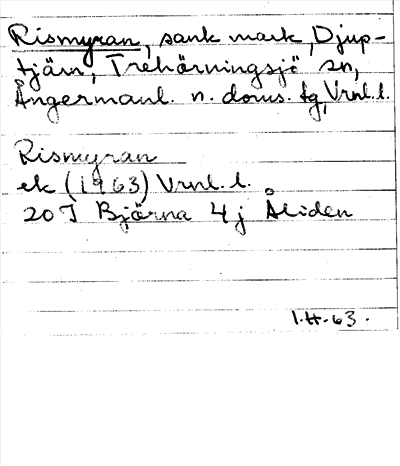 Rismyran, sank mark, Djup-
tjärn, Trehörningsjö sn,
Ångermanl. n. doms. tg, Vrnl. l.
Rismyran
ek (1963) Vrnl. l.
20 J Björna 4 j Åliden
1.H.63.